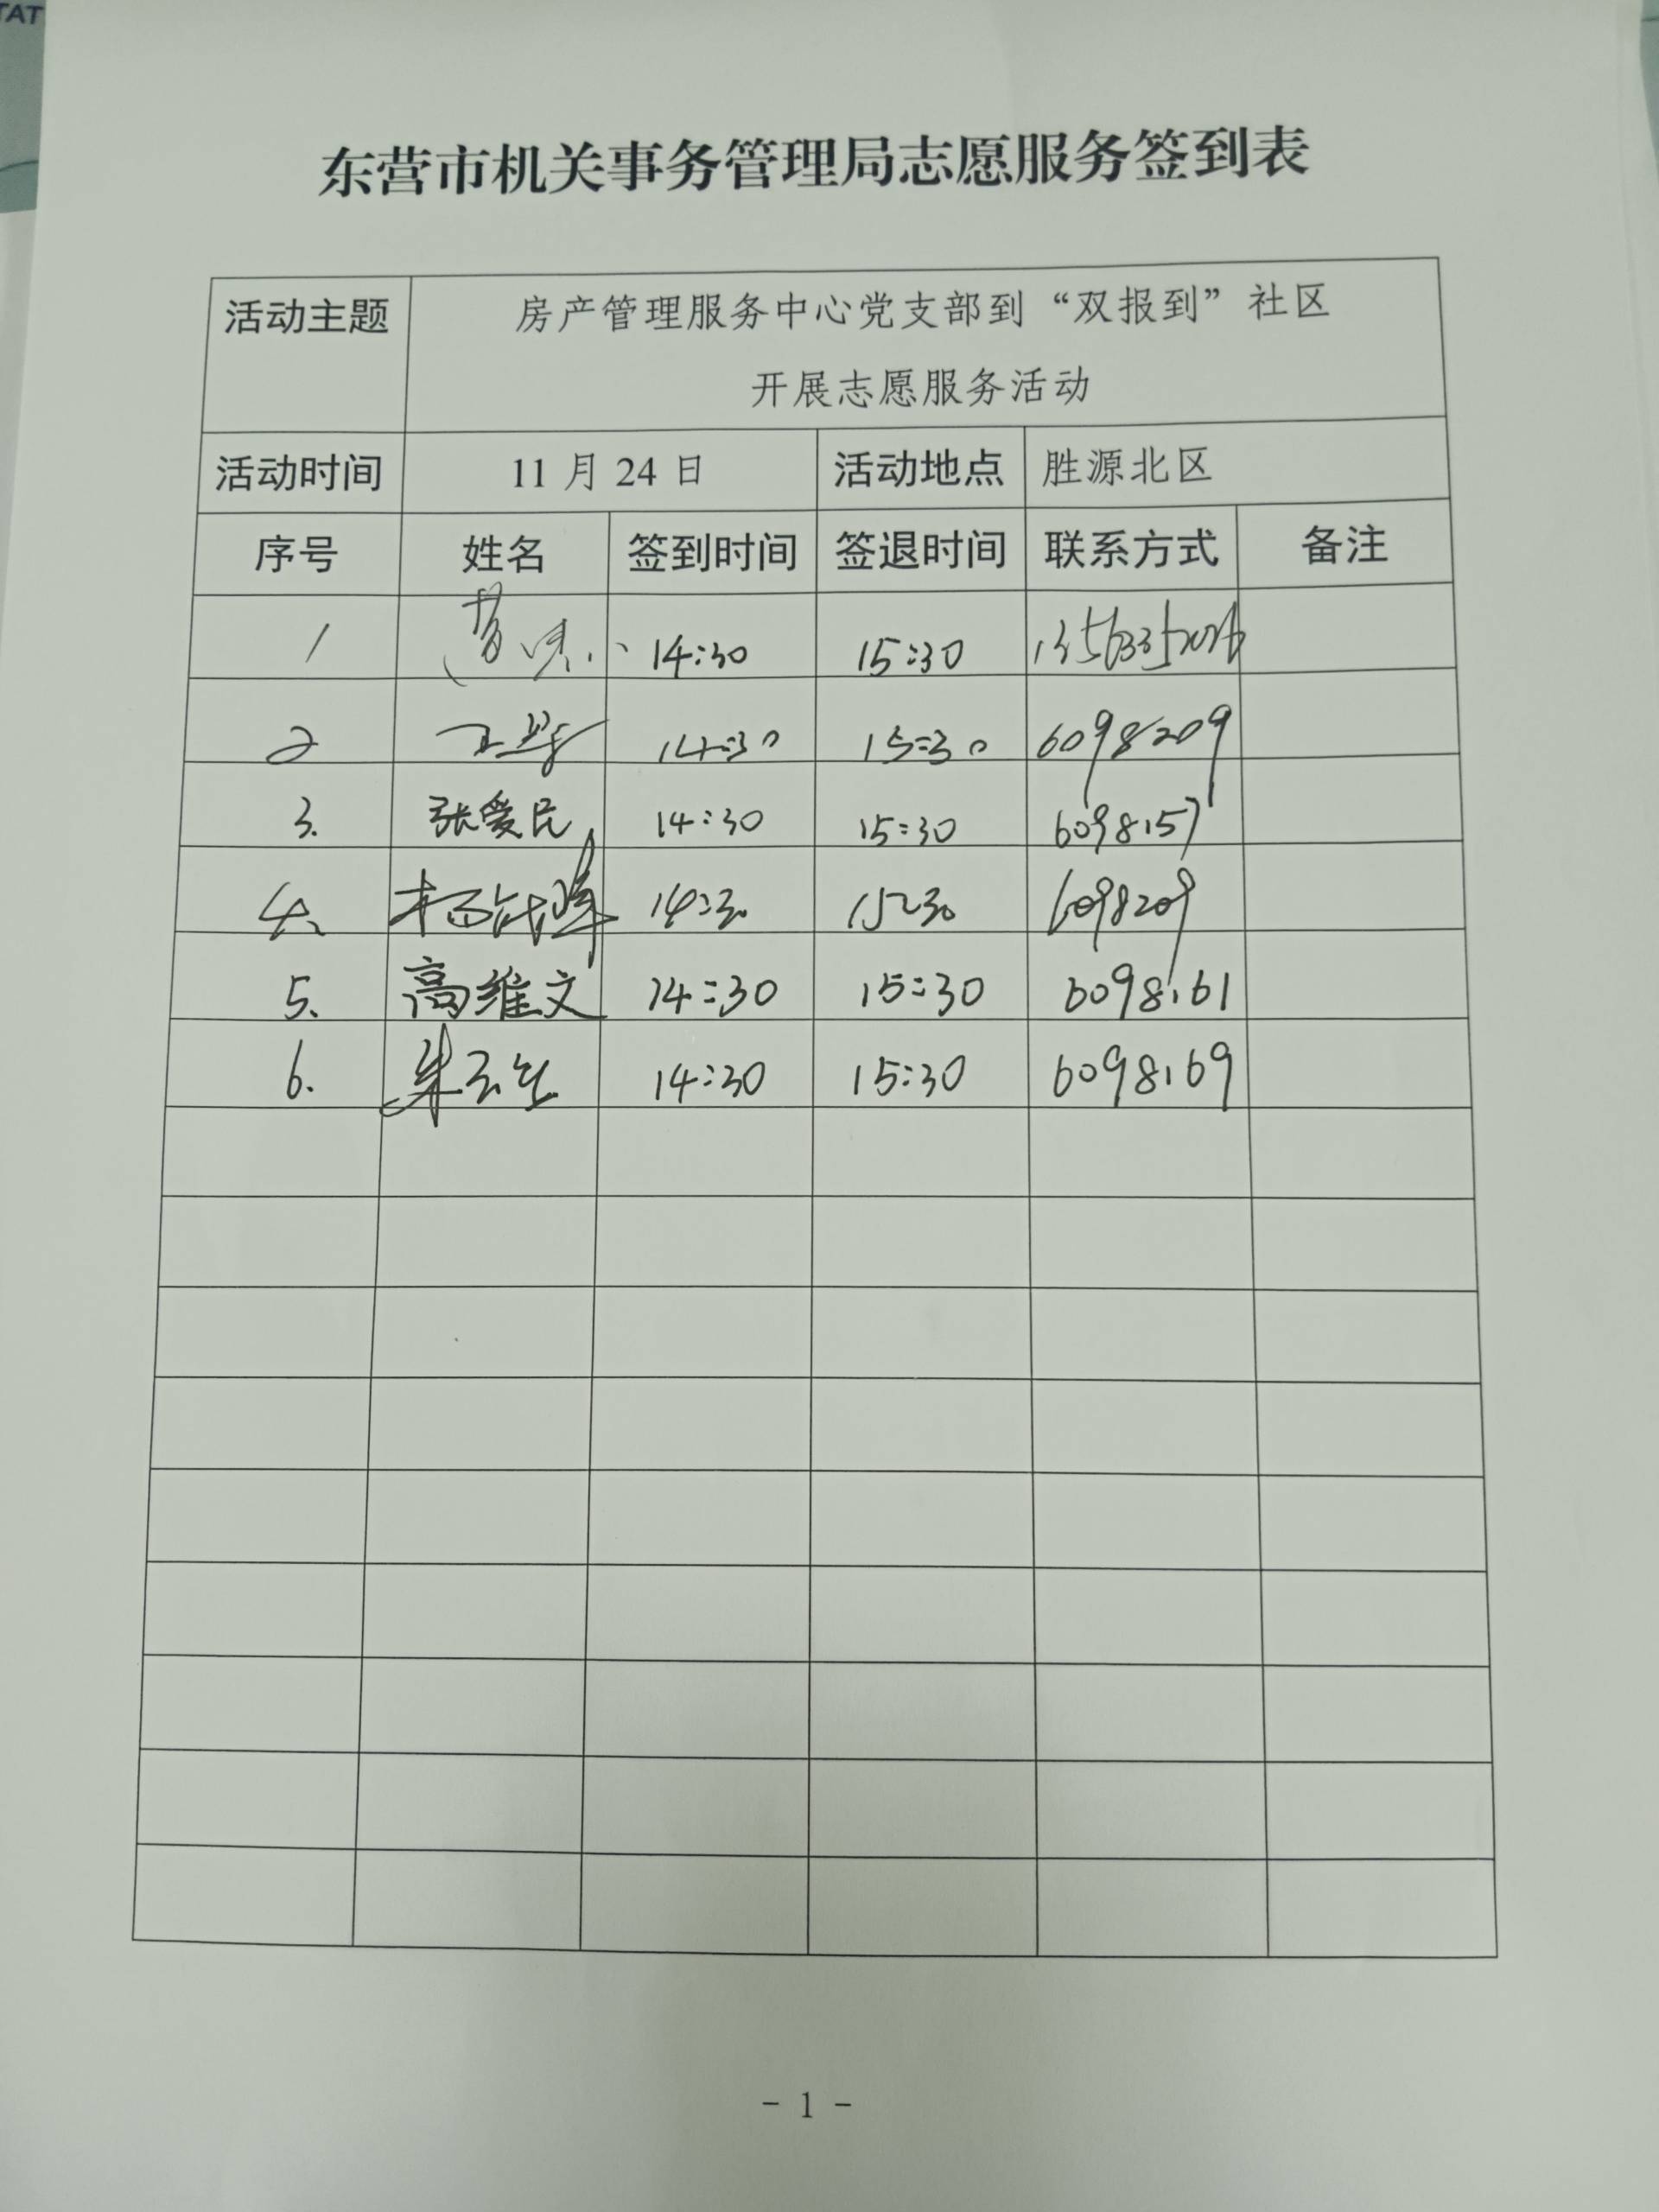 TAT
东营市机关事务管理局志愿服务签到表
活动主题 房产管理服务中心党支部到“双报到”社区
开展志愿服务活动
活动时间 11 月 24 日 活动地点 胜源北区
序号 姓名 签到时间 签退时间 联系方式 备注
1 14:30 15:30
2 14:30 15:30 6098209
3. 张爱民 14:30 15:30 6098157
4、 14:30 15:30 6098209
5、 高维文 14:30 15:30 6098161
6. 14:30 15:30 6098169
- 1 -